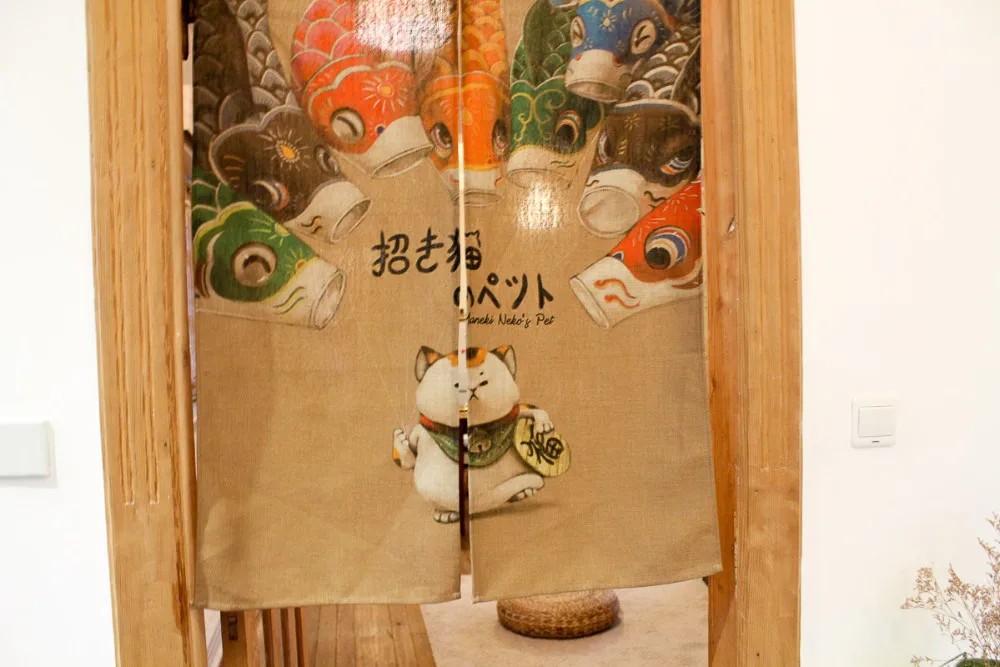 招き猫
のペット
Maneki Neko's Pet
福